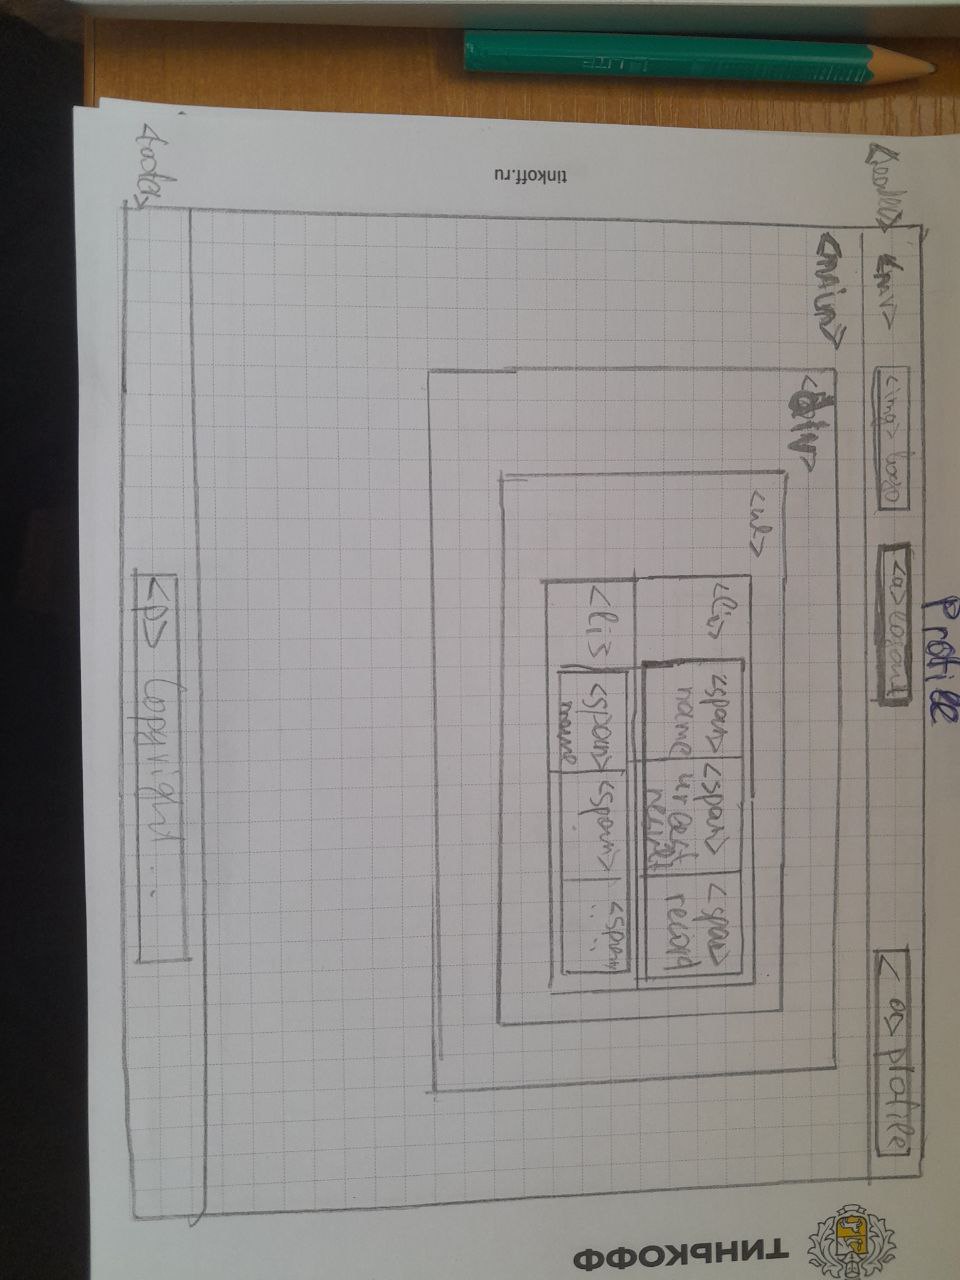 Profile
<nav>
<img> logo
<a> logout
<a> profile
<main>
<div>
<ul>
<li>
<span>
name
<span>
<span>
record
<li>
<span>
name
<span>
...
<span>
...
<p> Copyright ...
tinkoff.ru
ТИНЬКОФФ